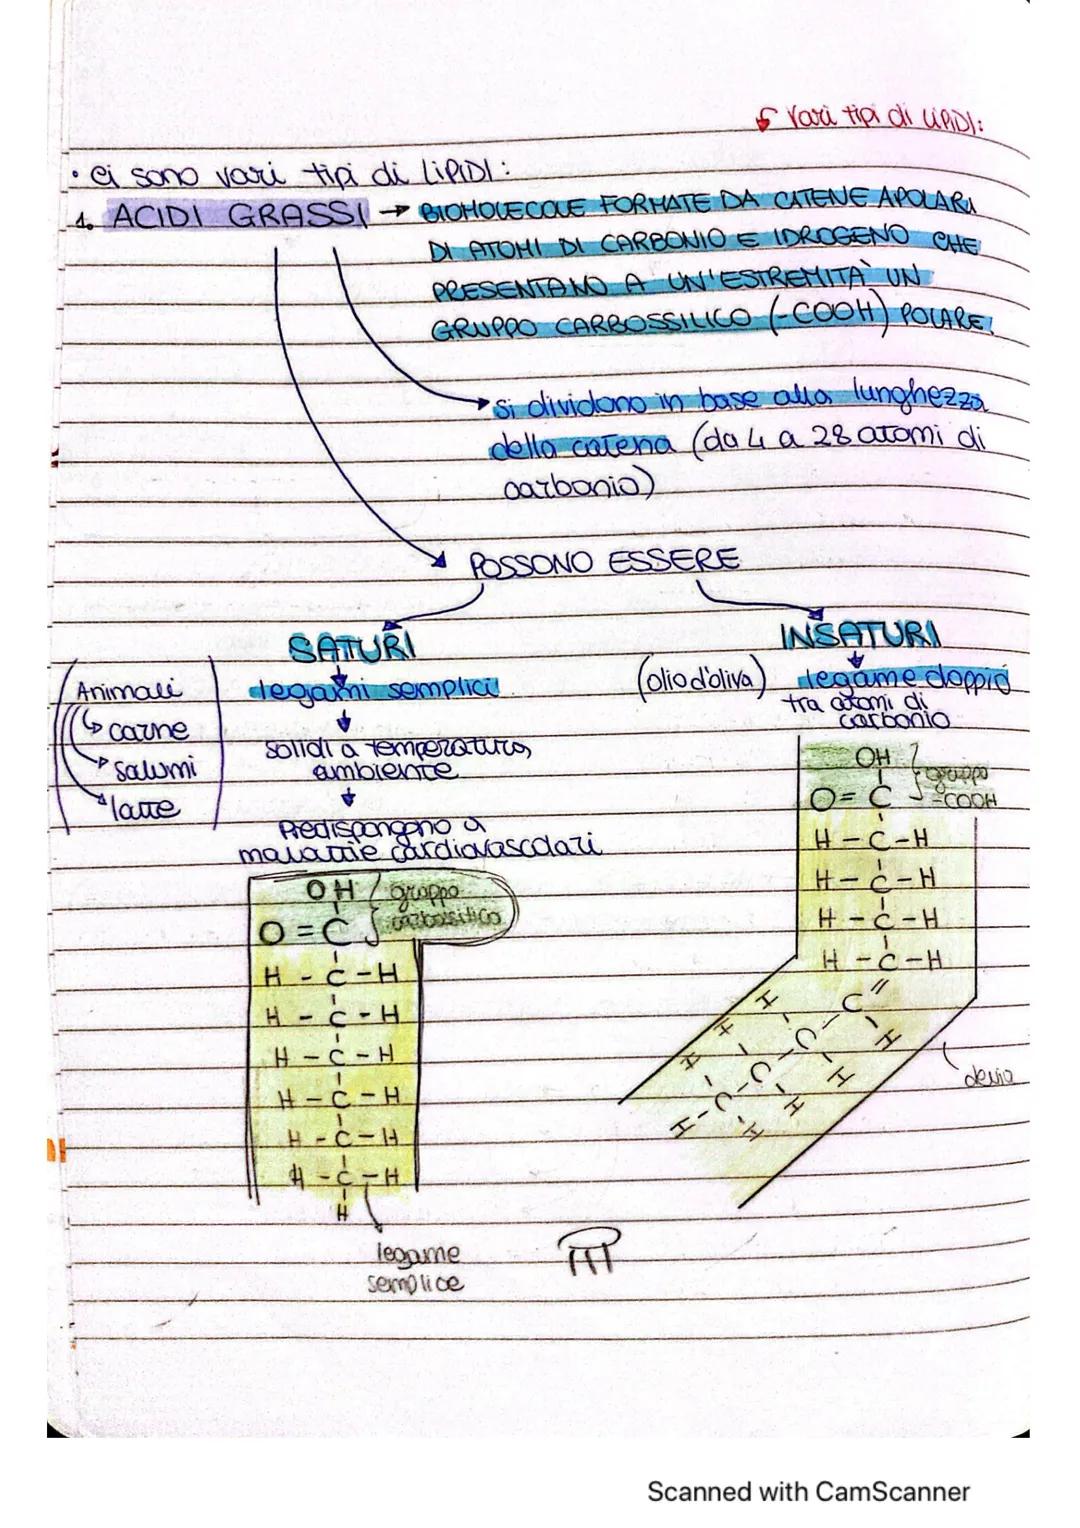 Vari tipi di LIPIDI:
• Ci sono vari tipi di LIPIDI:
1. ACIDI GRASSI → BIOMOLECOLE FORMATE DA CATENE APOLARI
DI ATOMI DI CARBONIO E IDROGENO CHE
PRESENTANO A UN'ESTREMITÀ UN
GRUPPO CARBOSSILICO (-COOH) POLARE.
si dividono in base alla lunghezza
della catena (da 4 a 28 atomi di
carbonio)
POSSONO ESSERE
SATURI
legami semplici
solidi a temperatura
ambiente
Predispongono a
malattie cardiovascolari
Animali
carne
salumi
latte
INSATURI
(olio d'oliva)
legame doppio
tra atomi di
carbonio
OH
gruppo
carbossilico
O = C
H - C - H
H - C - H
H - C - H
H - C - H
H - C - H
H - C - H
H
legame
semplice
OH
gruppo
-COOH
O = C
H - C - H
H - C - H
H - C - H
H - C - H
C
H
H
C
H
H
C
H
H
H - C
H
devia